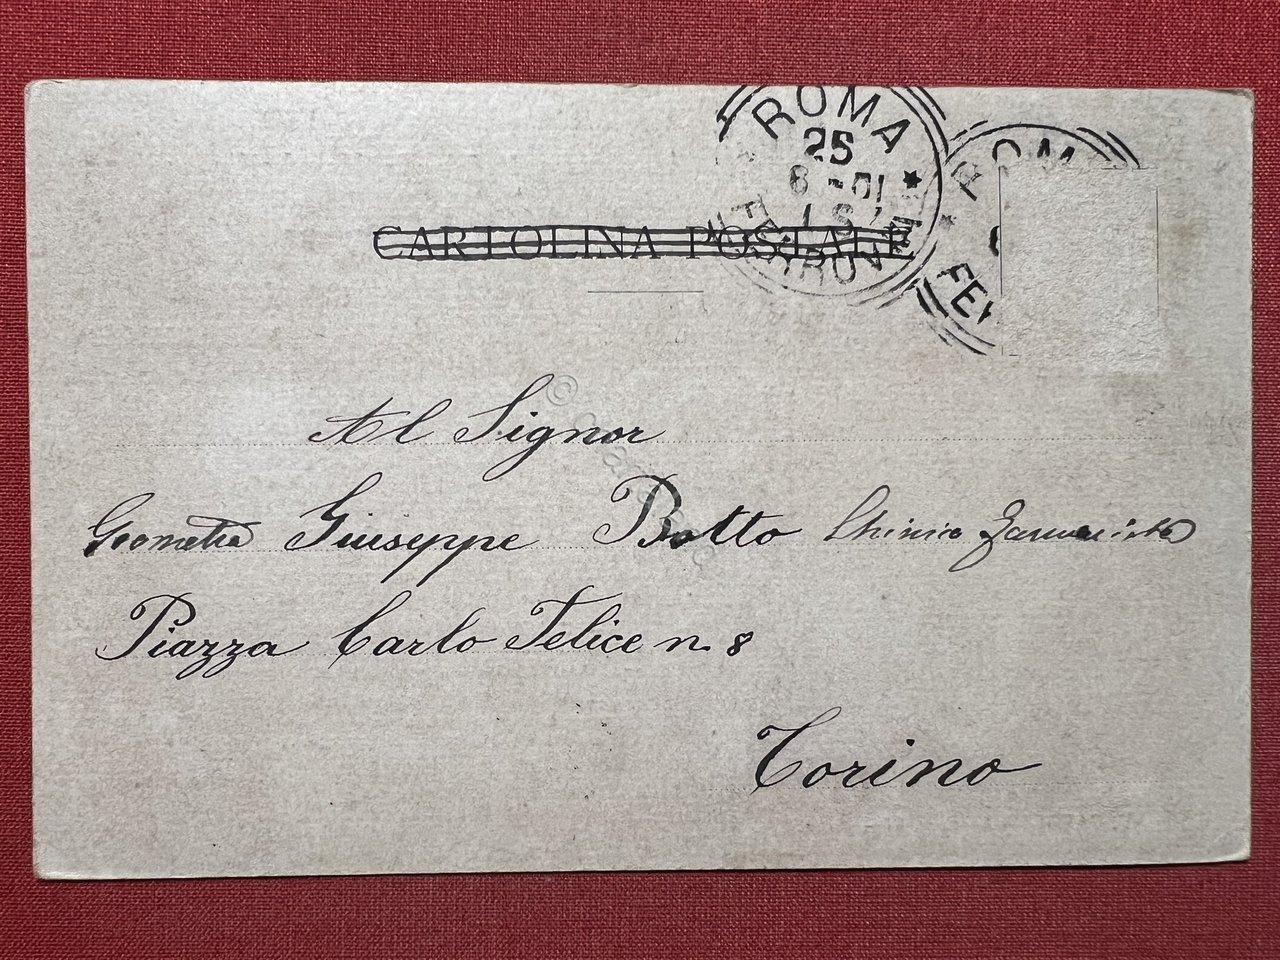 ROMA
25
8 -01
1 S
FERROVIA
ROM
FER
CARTOLINA POSTALE
Al Signor
Geometra Giuseppe Botto Chimico Farmacista
Piazza Carlo Felice n. 8
Torino